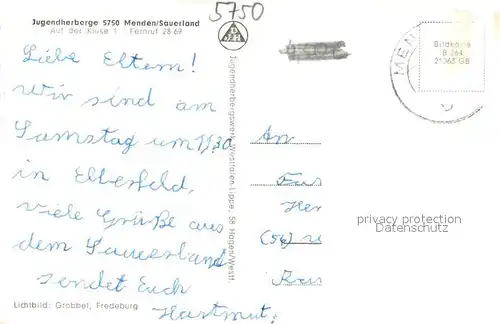 5750
Jugendherberge 5750 Menden/Sauerland
Auf der Kluse 1 Fernruf 28 69
Liebe Eltern!
Wir sind am
Samstag um 11.30
in Elberfeld,
viele Grüße aus
dem Sauerland
sendet Euch
Hartmut.
Lichtbild: Grobbel, Fredeburg
Jugendherbergswerk Westfalen-Lippe, 58 Hagen/Westf.
MEN
Bildkarte
B 264
21365 GB
An
Fas
Her
(56)
privacy protection
Datenschutz